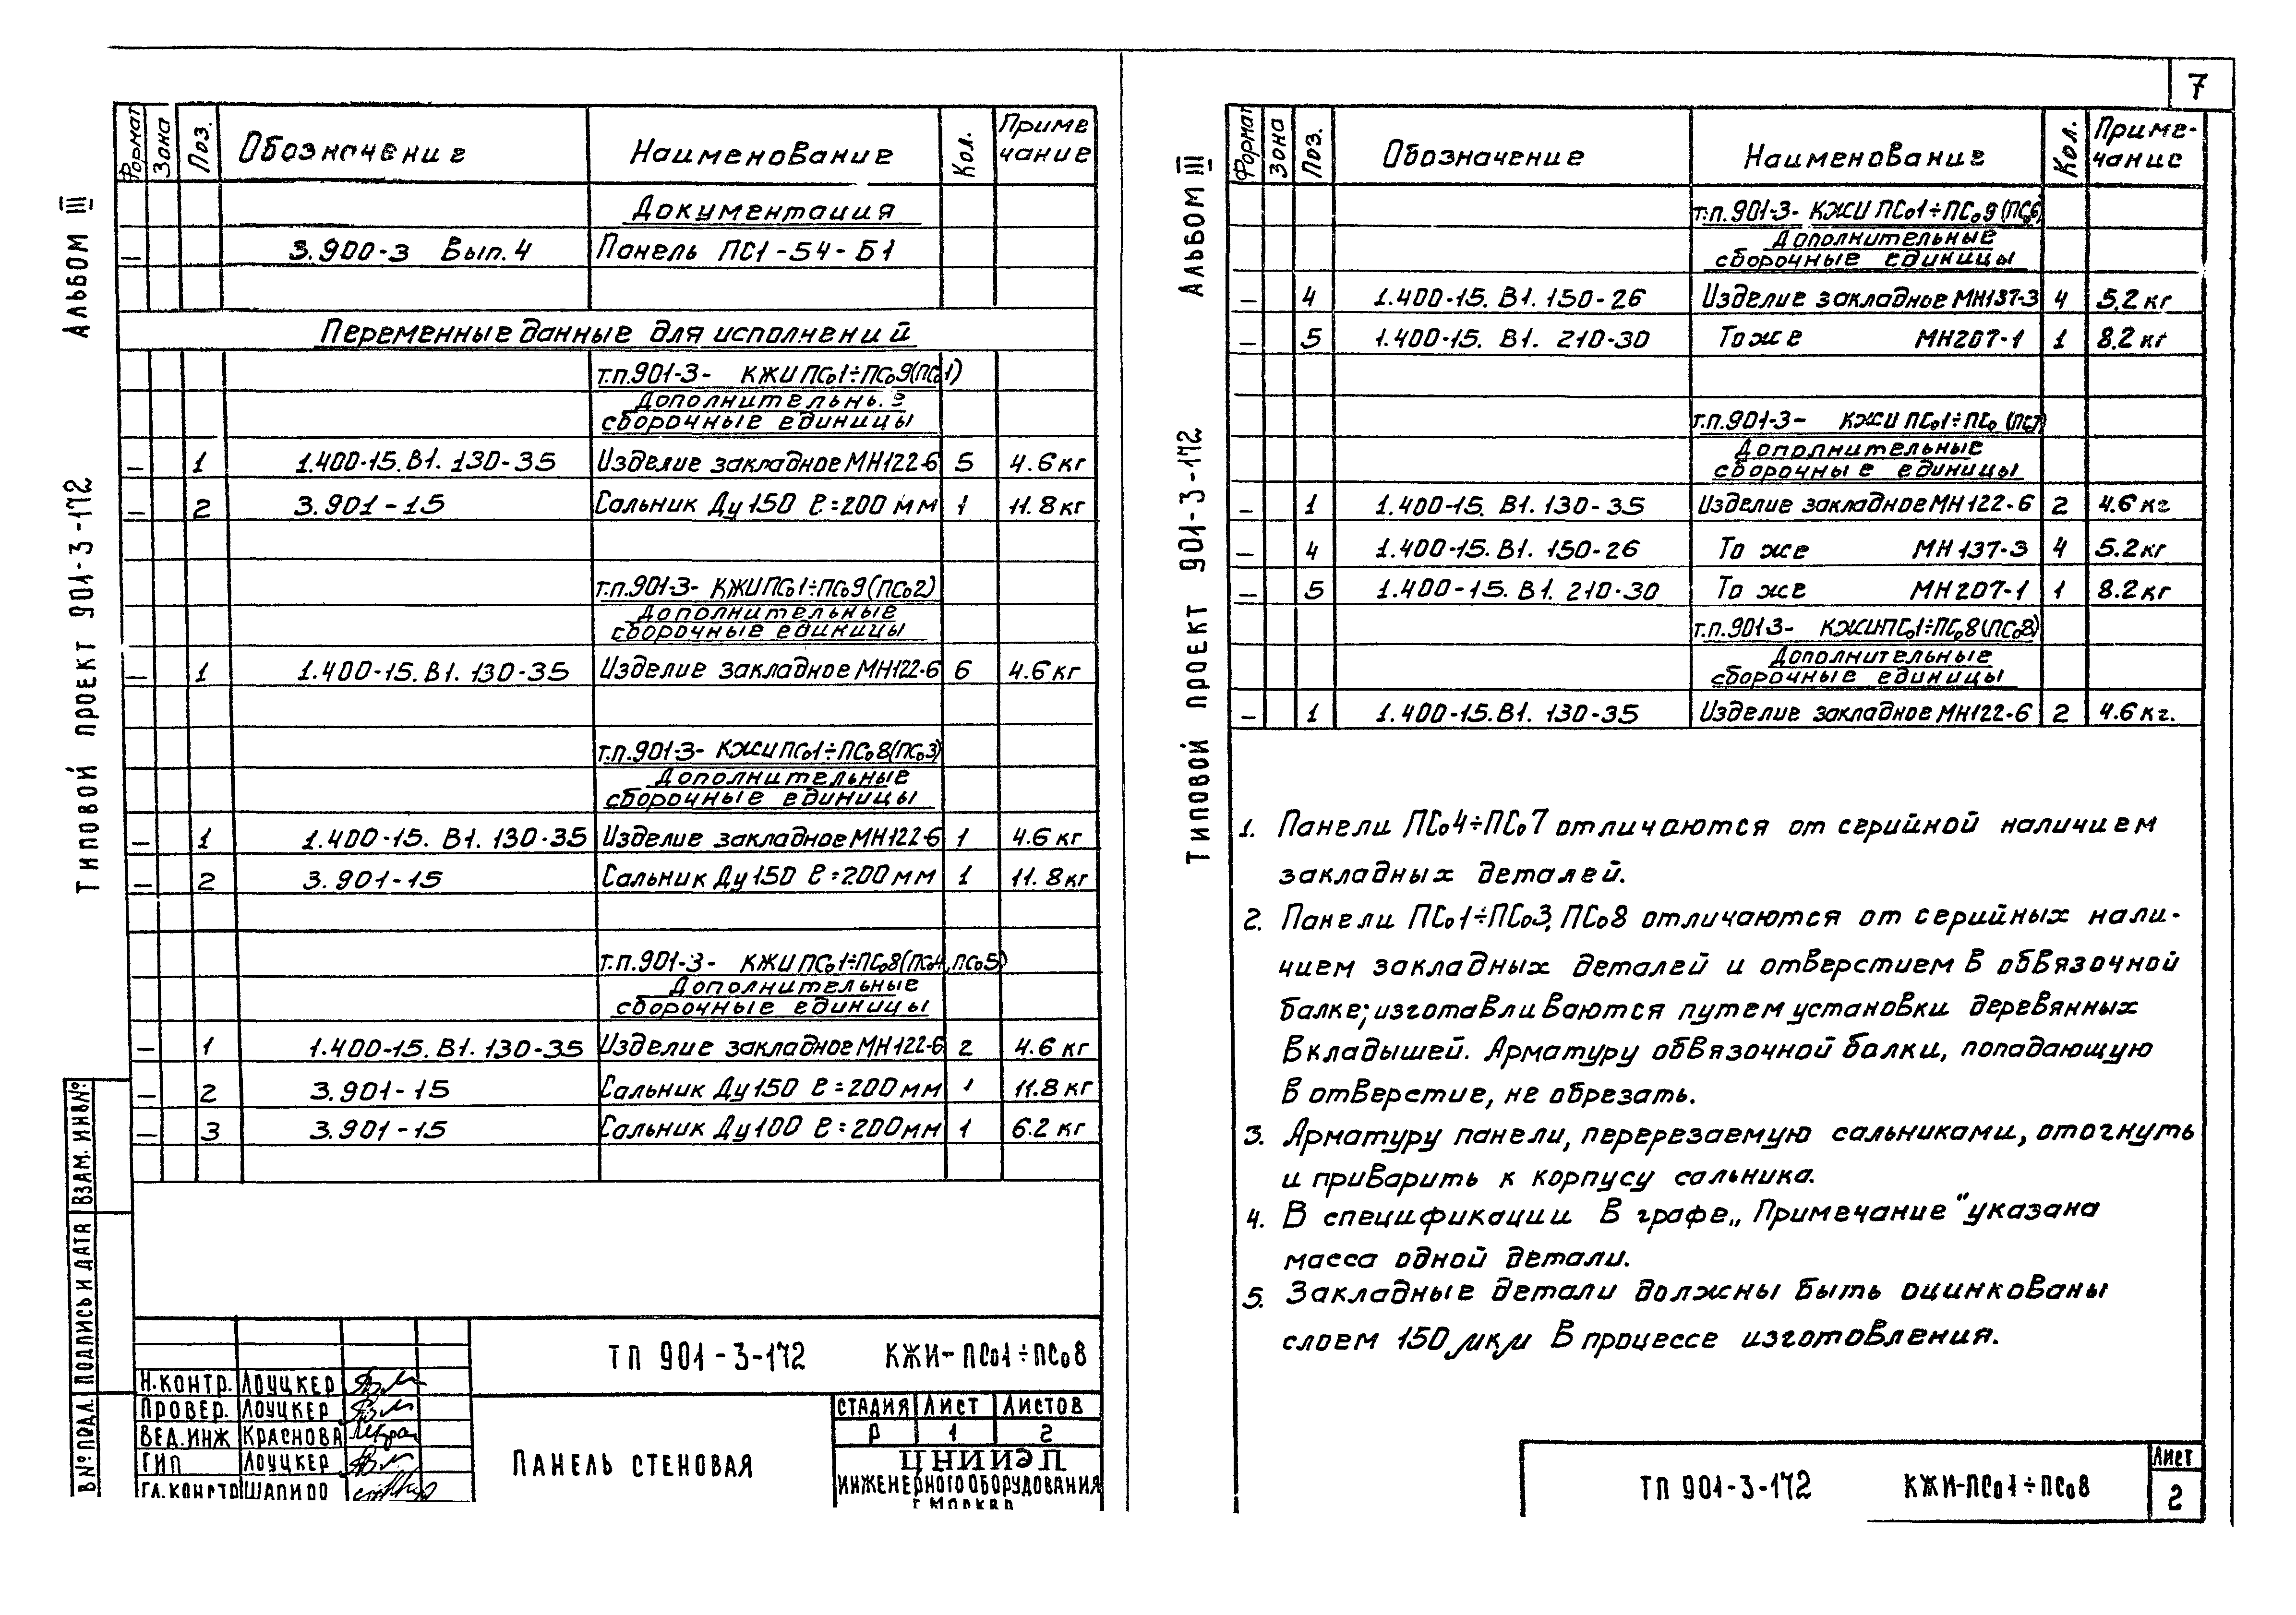 7
Альбом III
Типовой проект 901-3-172
Формат Зона Поз. Обозначение Наименование Кол. Приме чание
Документация
— 3.900-3 Вып. 4 Панель ПС1-54-Б1
Переменные данные для исполнений
т.п.901-3- КЖИ ПСо1÷ПСо9(ПСо1)
Дополнительн. е
сборочные единицы
— 1 1.400-15.В1.130-35 Изделие закладное МН122-6 5 4.6 кг
— 2 3.901-15 Сальник Ду150 ℓ=200 мм 1 11.8 кг
т.п.901-3- КЖИ ПСо1÷ПСо9(ПСо2)
Дополнительные
сборочные единицы
— 1 1.400-15.В1.130-35 Изделие закладное МН122-6 6 4.6 кг
т.п.901-3- КЖИ ПСо1÷ПСо8(ПСо3)
Дополнительные
сборочные единицы
— 1 1.400-15.В1.130-35 Изделие закладное МН122-6 1 4.6 кг
— 2 3.901-15 Сальник Ду150 ℓ=200 мм 1 11.8 кг
т.п.901-3- КЖИ ПСо1÷ПСо8(ПСо4, ПСо5)
Дополнительные
сборочные единицы
— 1 1.400-15.В1.130-35 Изделие закладное МН122-6 2 4.6 кг
— 2 3.901-15 Сальник Ду150 ℓ=200 мм 1 11.8 кг
— 3 3.901-15 Сальник Ду100 ℓ=200 мм 1 6.2 кг
В № подл. Подпись и дата Взам. инв №
ТП 901-3-172 КЖИ-ПСо1÷ПСо8
Н.контр. Лоуцкер
Провер. Лоуцкер
Вед.инж Краснова
ГИП Лоуцкер
Гл.констр Шапиро
Панель стеновая
Стадия Лист Листов
Р 1 2
ЦНИИЭП
инженерного оборудования
г. Москва
Альбом III
Типовой проект 901-3-172
Формат Зона Поз. Обозначение Наименование Кол. Приме- чание
т.п.901-3- КЖИ ПСо1÷ПСо9(ПСо6)
Дополнительные
сборочные единицы
— 4 1.400-15.В1.150-26 Изделие закладное МН137-3 4 5.2 кг
— 5 1.400-15.В1.210-30 То же МН207-1 1 8.2 кг
т.п.901-3- КЖИ ПСо1÷ПСо (ПС7)
Дополнительные
сборочные единицы
— 1 1.400-15.В1.130-35 Изделие закладное МН122-6 2 4.6 кг
— 4 1.400-15.В1.150-26 То же МН137-3 4 5.2 кг
— 5 1.400-15.В1.210-30 То же МН207-1 1 8.2 кг
т.п.901 3- КЖИ ПСо1÷ПСо8(ПСо8)
Дополнительные
сборочные единицы
— 1 1.400-15.В1.130-35 Изделие закладное МН122-6 2 4.6 кг.
1. Панели ПСо4÷ПСо7 отличаются от серийной наличием
закладных деталей.
2. Панели ПСо1÷ПСо3, ПСо8 отличаются от серийных нали-
чием закладных деталей и отверстием в обвязочной
балке; изготавливаются путем установки деревянных
вкладышей. Арматуру обвязочной балки, попадающую
в отверстие, не обрезать.
3. Арматуру панели, перерезаемую сальниками, отогнуть
и приварить к корпусу сальника.
4. В спецификации в графе „Примечание" указана
масса одной детали.
5. Закладные детали должны быть оцинкованы
слоем 150 мкм в процессе изготовления.
ТП 901-3-172 КЖИ-ПСо1÷ПСо8
Лист
2